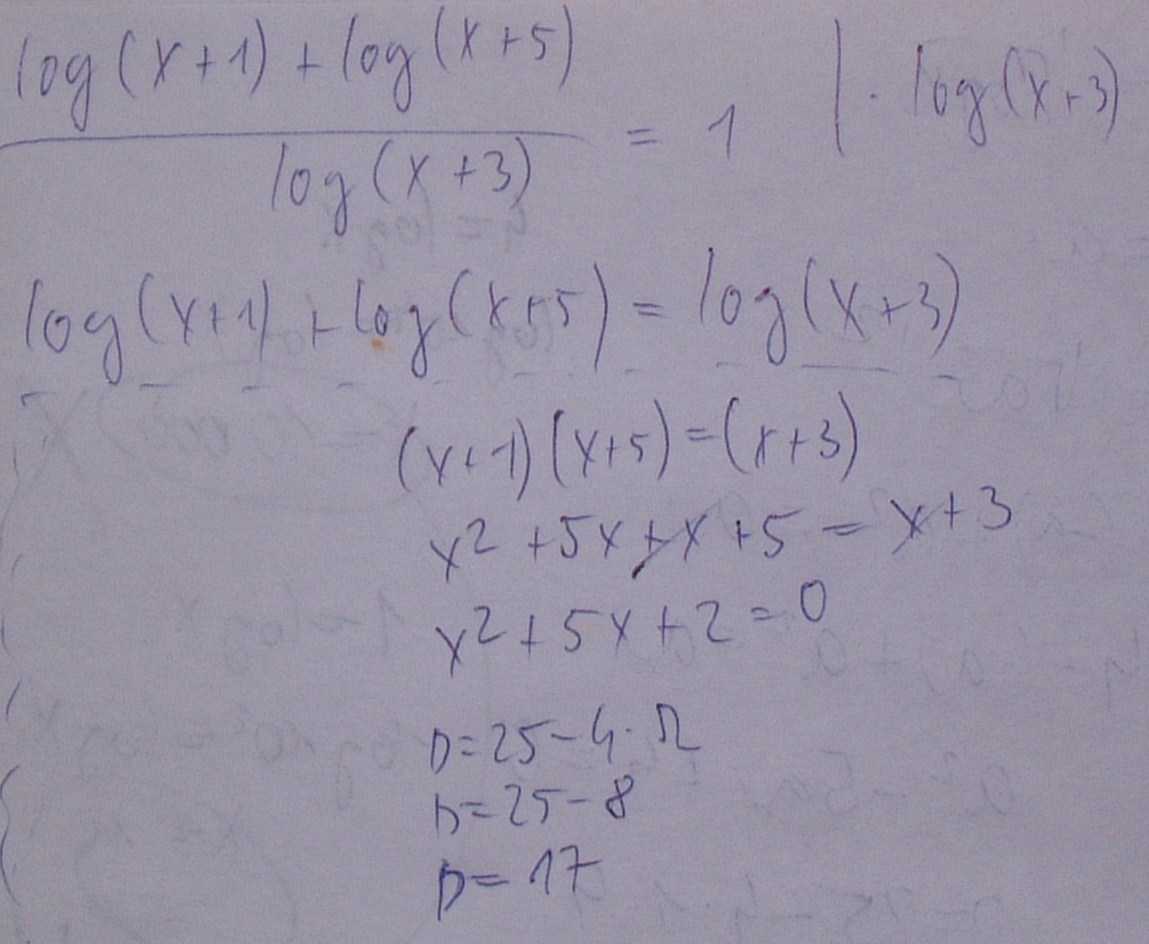 log(x+1)+log(x+5)
log(x+3)
= 1 | · log(x+3)
log(x+1)+log(x+5)=log(x+3)
(x+1)(x+5)=(x+3)
x²+5x+x+5=x+3
x²+5x+2=0
D=25-4·
D=25-8
D=17